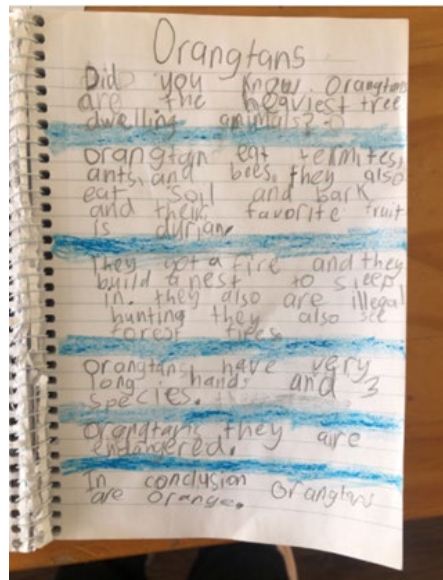 Orangtans
Did you know Orangtans
are the heaviest tree
dwelling animals?
orangtan eat termites,
ants, and bees. they also
eat soil and bark
and their favorite fruit
is durian.
They got a fire and they
build a nest to sleep
in. they also are illegal
hunting they also see
forest fires
orangtans have very
long hands and 3
species.
Orangtans they are
endangered.
In conclusion Orangtans
are orange.